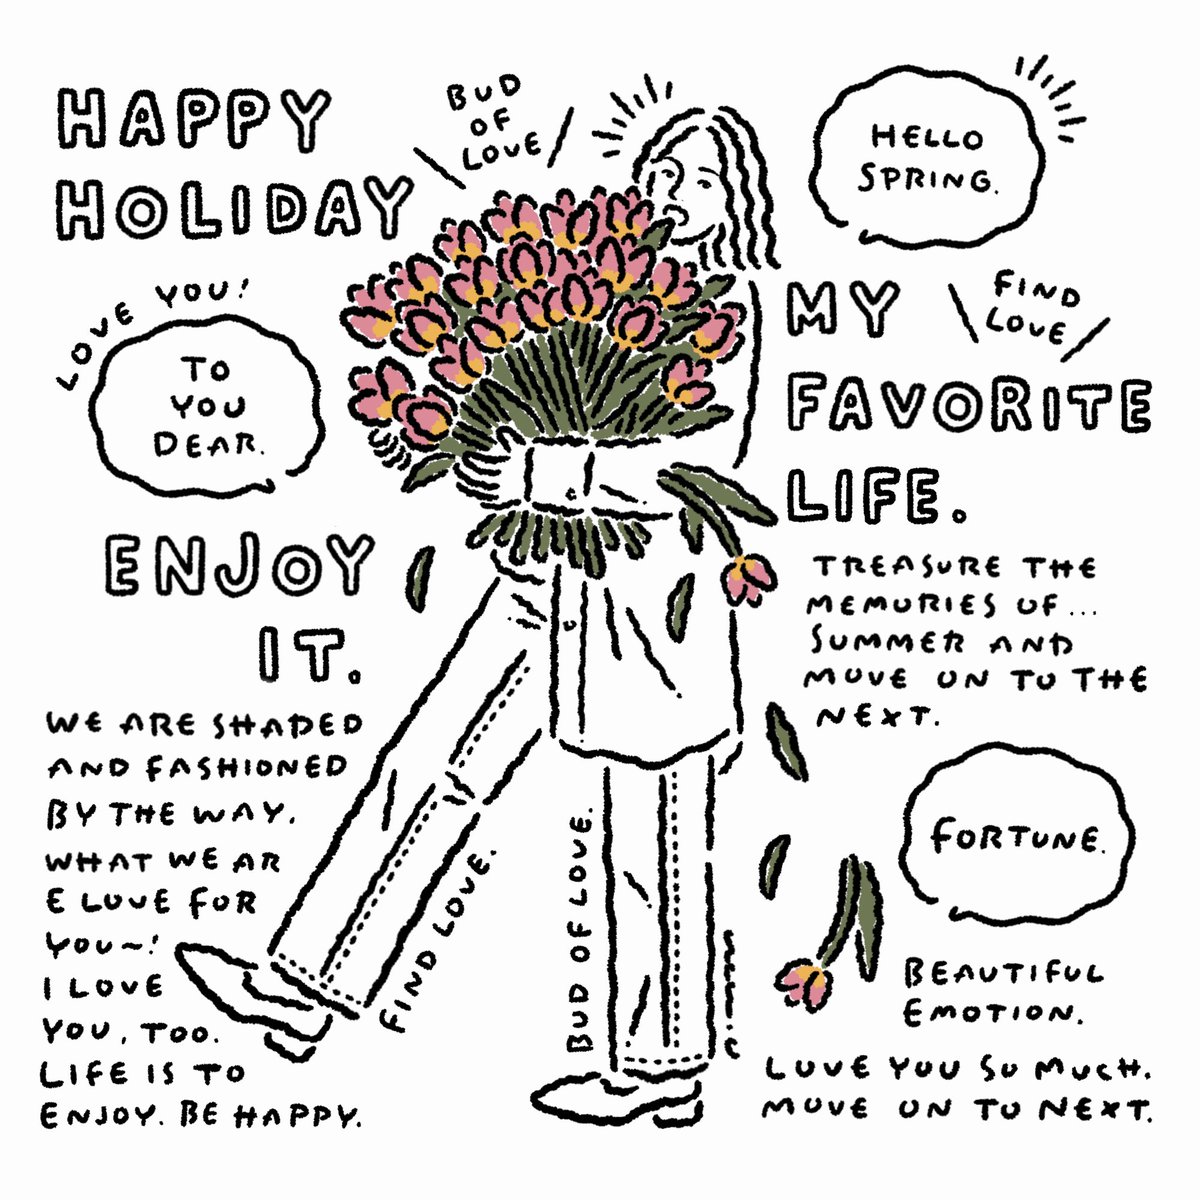 HAPPY
HOLIDAY
BUD
OF
LOVE
HELLO
SPRING.
LOVE YOU!
TO
YOU
DEAR.
MY
FAVORITE
LIFE.
FIND
LOVE
ENJOY
IT.
TREASURE THE
MEMORIES OF...
SUMMER AND
MOVE ON TO THE
NEXT.
WE ARE SHAPED
AND FASHIONED
BY THE WAY.
WHAT WE AR
E LOVE FOR
YOU~!
I LOVE
YOU, TOO.
LIFE IS TO
ENJOY. BE HAPPY.
FIND LOVE.
BUD OF LOVE.
FORTUNE.
BEAUTIFUL
EMOTION.
LOVE YOU SO MUCH.
MOVE ON TO NEXT.